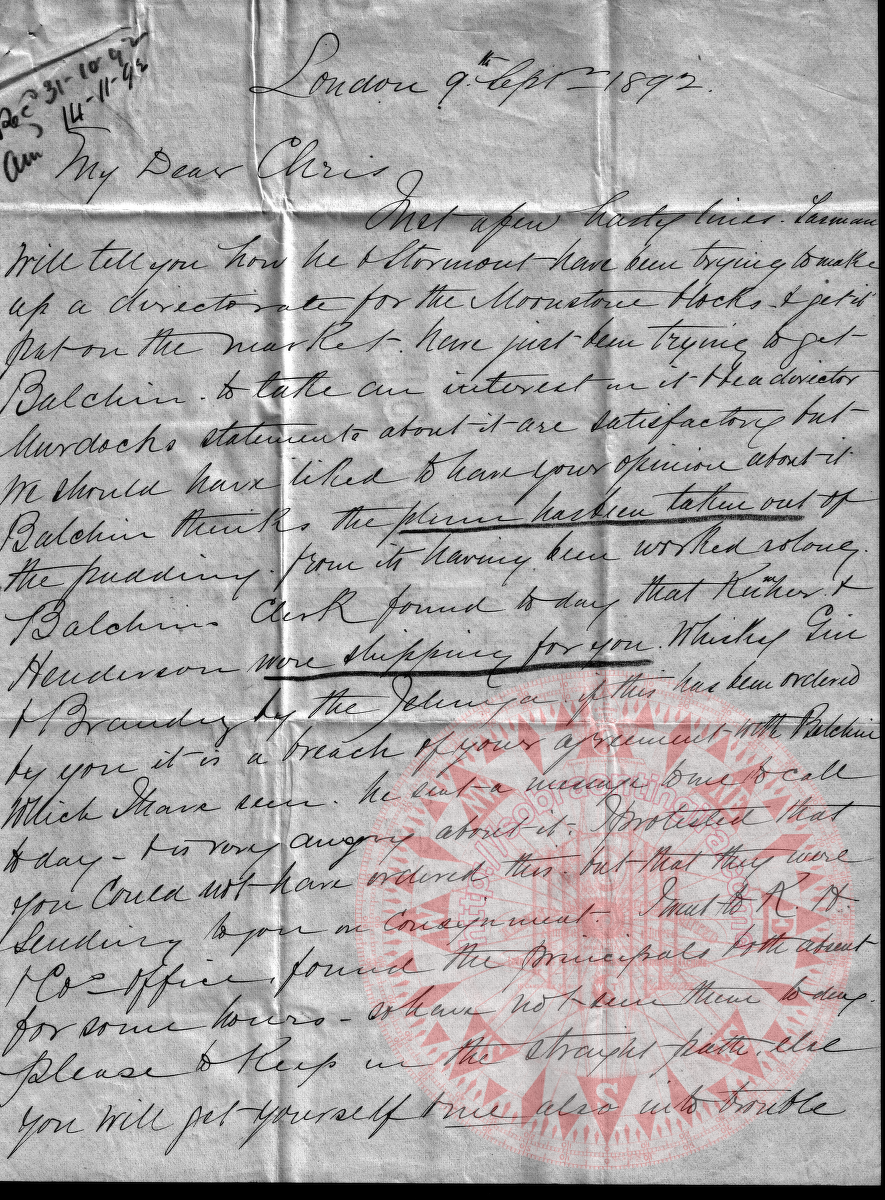 Rec^d 31-10-92
Ans^d 14-11-92
London 9th Septr 1892.
My Dear Chris
Just a few hasty lines. Tasman
will tell you how he & Stormont have been trying to make
up a directorate for the Moonstone blocks & get it
put on the market. have just been trying to get
Balchin to take an interest in it & be a director
Murdochs statements about it are satisfactory but
we should have liked to have your opinion about it
Balchin thinks the plum has been taken out of
the pudding from its having been worked so long.
Balchins Clerk found today that &
Henderson were shipping for you. Whisky Gin
& Brandy by the if this has been ordered
by you it is a breach of your agreement with Balchin
which I have seen. he sent a message to me to call
today - & is very angry about it. I protested that
you could not have ordered this. but that they were
sending to you on consignment. I went to K H.
& Cos office, found the principals both absent
for some hours - so have not seen them today.
please to keep in the straight path, else
you will get yourself & me also into trouble